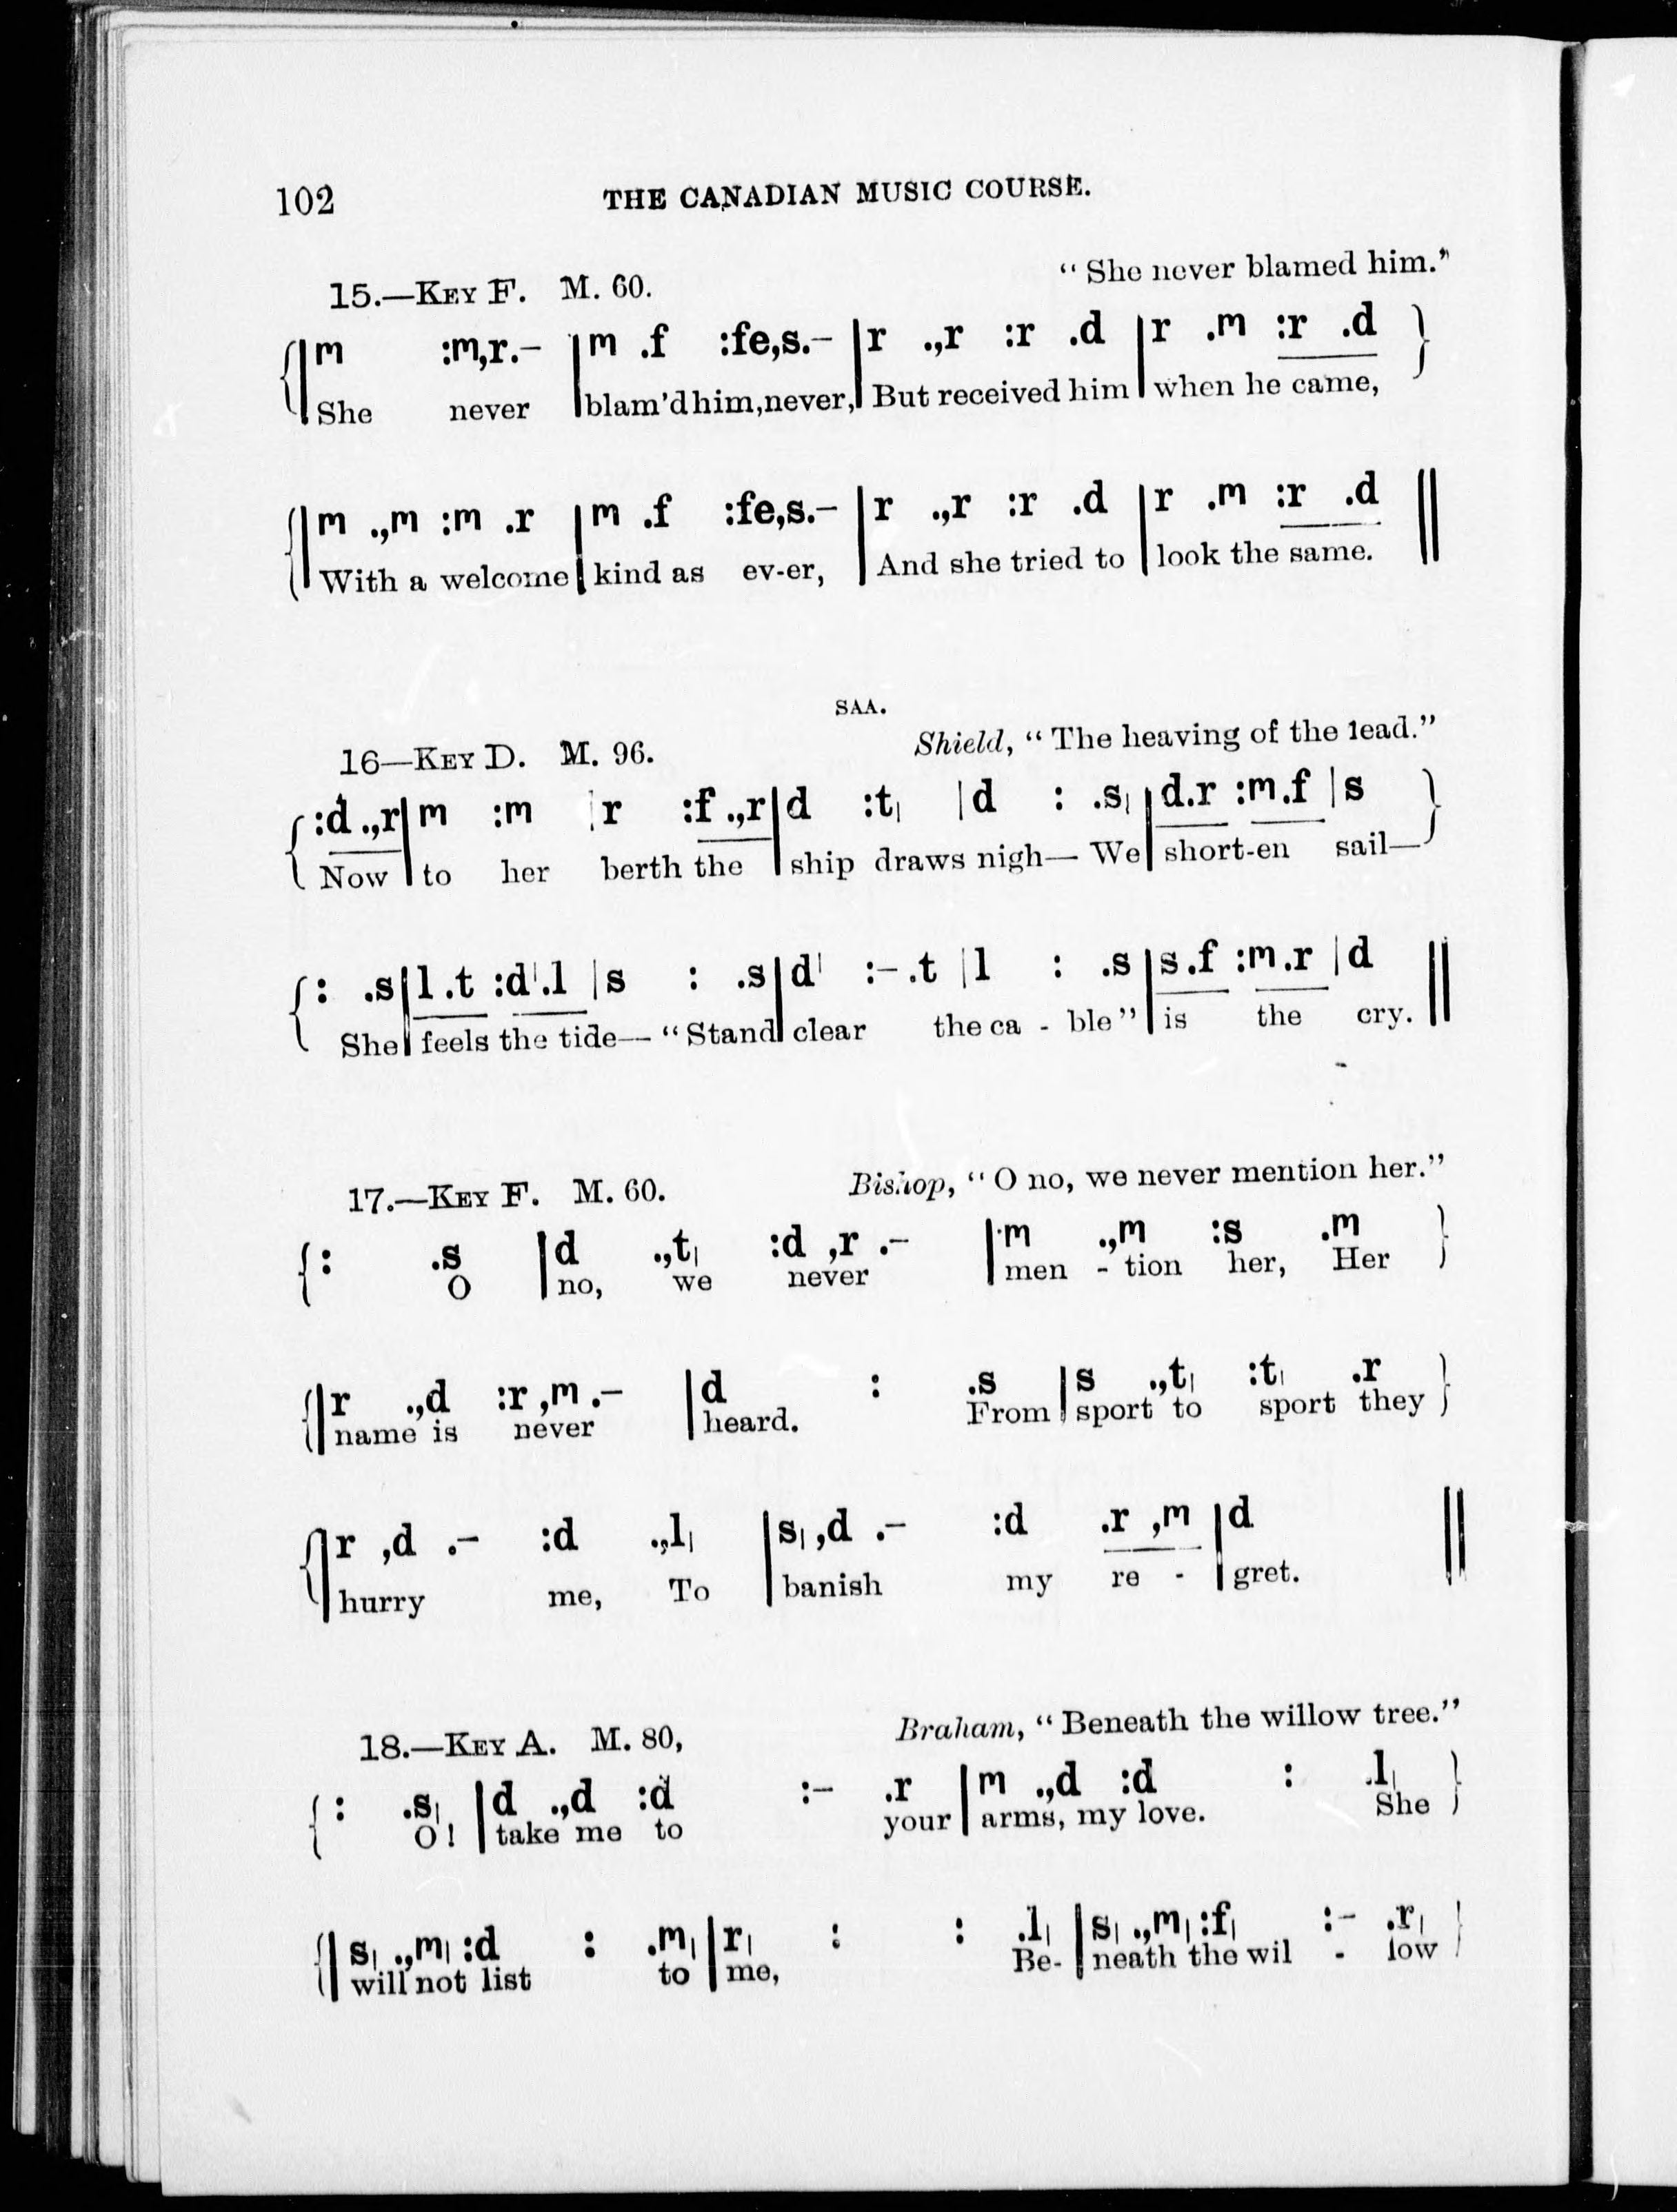 102 THE CANADIAN MUSIC COURSE.
15.—KEY F. M. 60. "She never blamed him."
{|m :m,r.– |m .f :fe,s.– |r .,r :r .d |r .m :r .d }
She never blam'd him, never, But received him when he came,
{|m .,m :m .r |m .f :fe,s.– |r .,r :r .d |r .m :r .d ||
With a welcome kind as ev-er, And she tried to look the same.
SAA.
16—KEY D. M. 96. Shield, "The heaving of the lead."
{:d .,r|m :m |r :f .,r|d :t₁ |d : .s₁|d.r :m.f |s }
Now to her berth the ship draws nigh— We short-en sail—
{: .s|l .t :d'.l |s : .s|d' :– .t |l : .s|s.f :m.r |d ||
She feels the tide— "Stand clear the ca - ble" is the cry.
17.—KEY F. M. 60. Bishop, "O no, we never mention her."
{: .s |d .,t₁ :d ,r .– |m .,m :s .m }
O no, we never men - tion her, Her
{|r .,d :r ,m .– |d : .s |s .,t₁ :t₁ .r }
name is never heard. From sport to sport they
{|r ,d .– :d .,l₁ |s₁ ,d .– :d .r ,m |d ||
hurry me, To banish my re - gret.
18.—KEY A. M. 80, Braham, "Beneath the willow tree."
{: .s₁ |d .,d :d :– .r |m .,d :d : .l₁ }
O! take me to your arms, my love. She
{|s₁ .,m₁ :d : .m₁ |r₁ : : .l₁ |s₁ .,m₁ :f₁ :– .r₁ }
will not list to me, Be- neath the wil - low